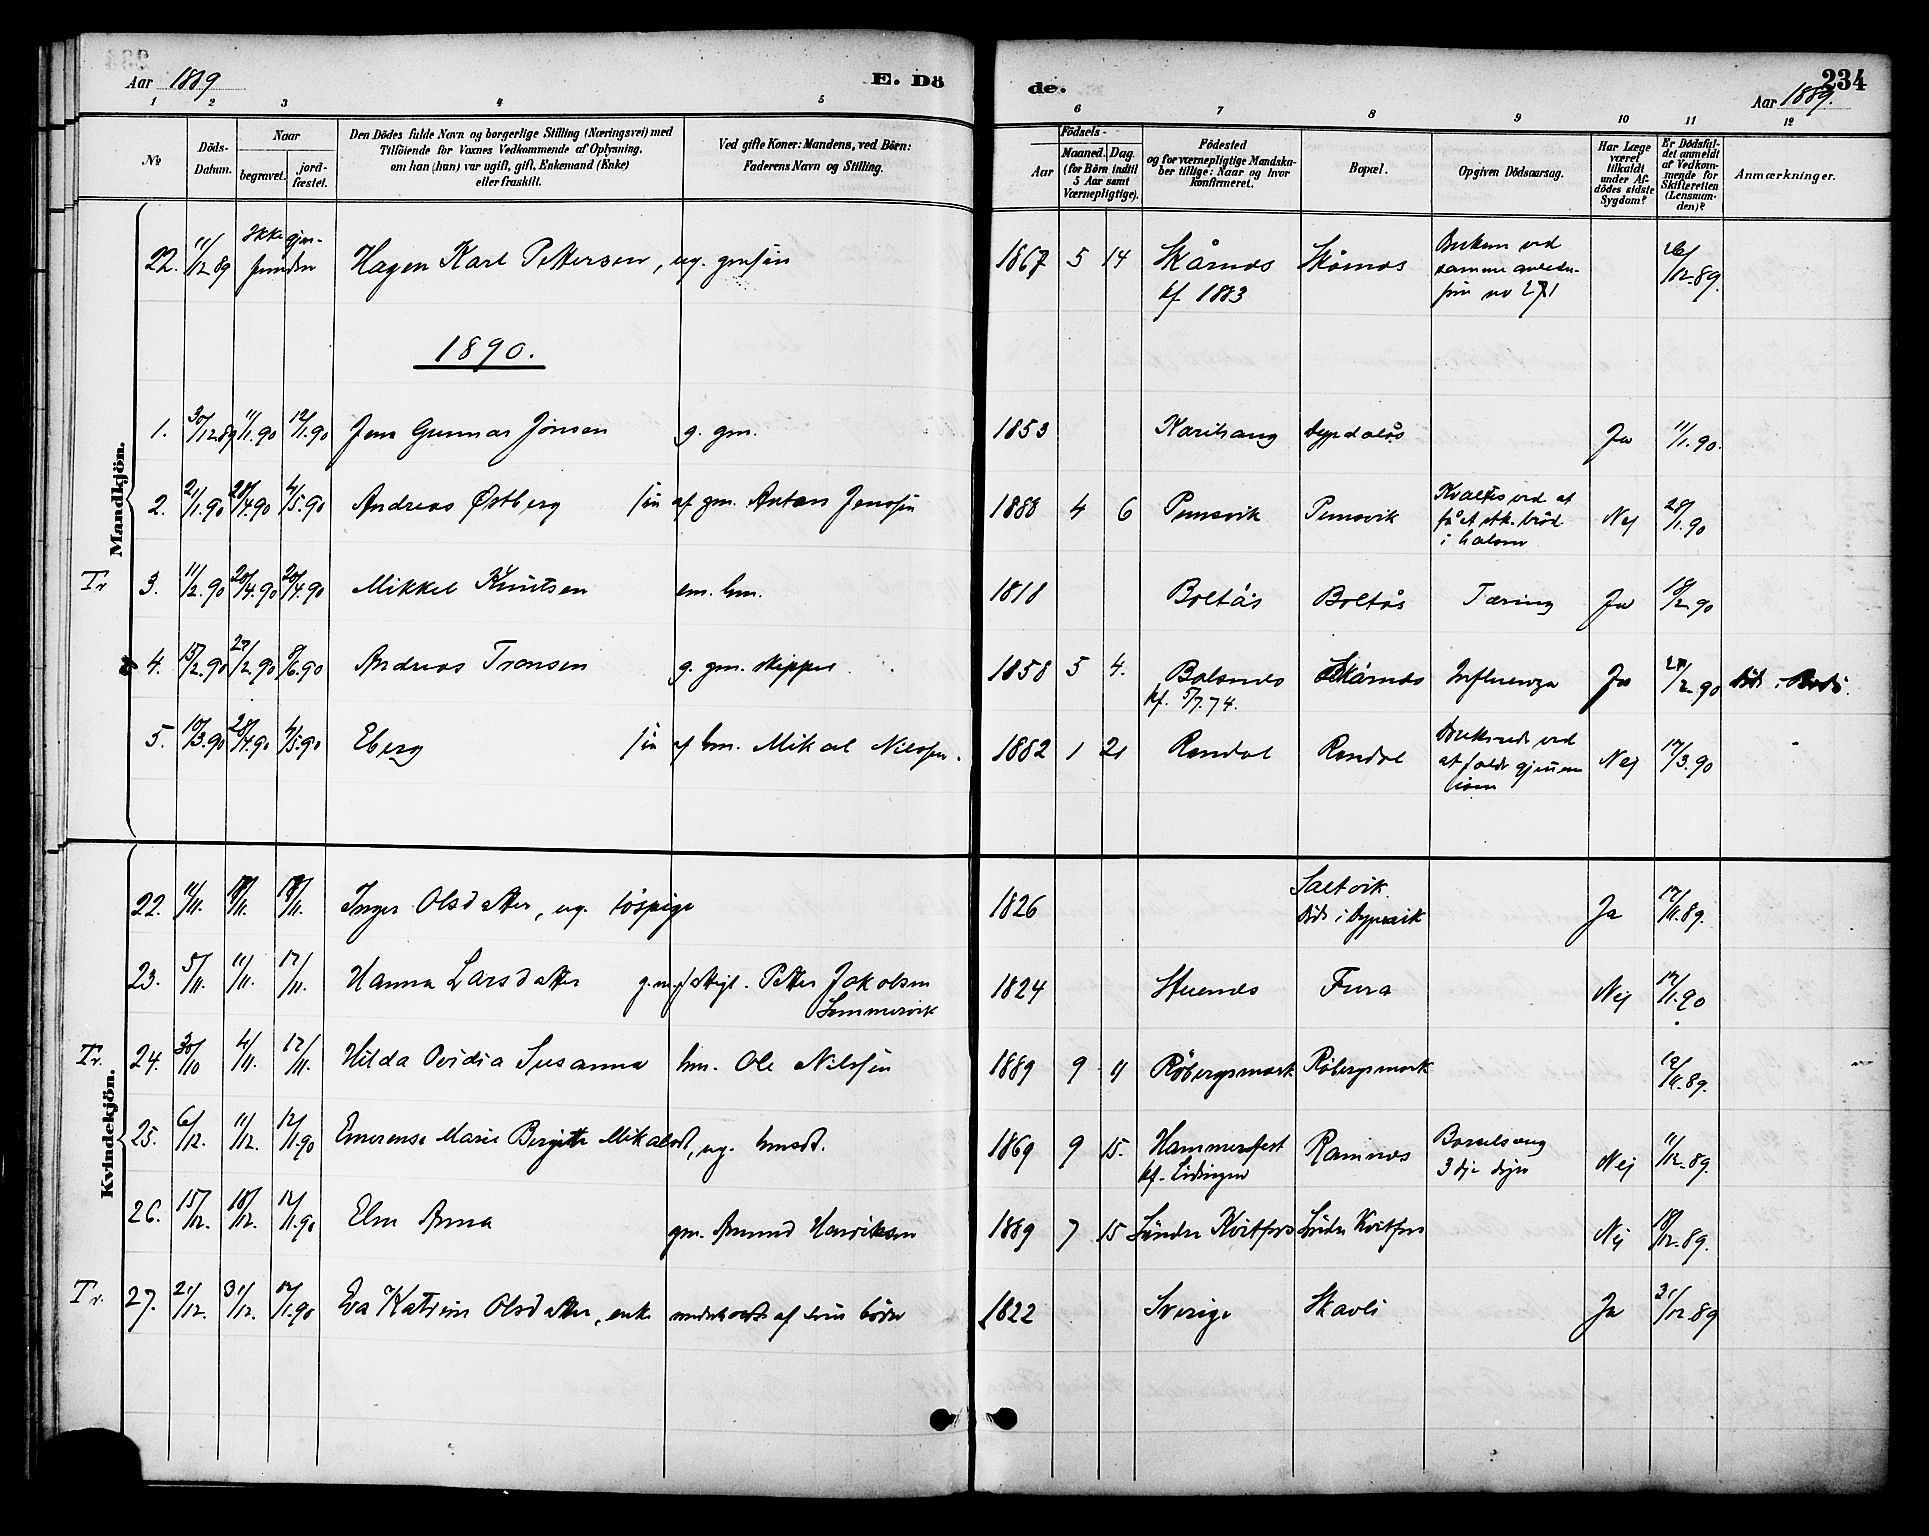 Aar 1889
E. Dö
de.
234
Aar 1889.
1 2 3 4 5 6 7 8 9 10 11 12
№
Döds-
Datum.
Naar
begravet.
jord-
fæstet.
Den Dödes fulde Navn og borgerlige Stilling (Næringsvei) med
Tilföiende for Voxnes Vedkommende af Oplysning,
om han (hun) var ugift, gift, Enkemand (Enke)
eller fraskilt.
Ved gifte Koner: Mandens, ved Börn:
Faderens Navn og Stilling.
Födsels-
Aar
Maaned.
Dag.
(for Börn indtil
5 Aar samt
Værnepligtige).
Födested
og for værnepligtige Mandska-
ber tillige: Naar og hvor
konfirmeret.
Bopæl.
Opgiven Dödsaarsag.
Har Læge
været
tilkaldt
under Af-
dödes sidste
Sygdom?
Er Dödsfal-
det anmeldt
af Vedkom-
mende for
Skifteretten
(Lensman-
den)?
Anmærkninger.
Mandkjön.
22. 11/12 89 Ikke gjen- Hagen Karl Pettersen, ug. gmsön 1867 5 14 Skårnes Skårnes ved 12.89.
kf 1883 samme
no 271
1890.
1. 30/12 89 11/1.90 12/1.90 Jens Gunnar Jönsen g. gm. 1853 Karihaug Dypdalås Ja 11/1.90.
2. 21/1.90 28/4.90 4/5.90 Andreas Østberg sön af gm. Antan Jenssen 1888 4 6 Pumsvik Pumsvik Kvaltes ved at Nej 28/1.90
få et stk. bröd
i halsen
Tr 3. 11/2.90 20/4.90 20/4.90 Mikkel Knutsen em. hm. 1818 Boltås Boltås Tæring Ja 18/2.90
4. 15/2.90 27/2.90 8/6.90 Andreas Tronsen g. gm. skipper 1858 5 4. Balsnes Skårnes Influenza Ja 27/2.90 död i Bodö.
kf. 5/7.74.
5. 10/3.90 28/4.90 4/5.90 Eberg sön af hm. Mikal Nilssen. 1882 1 21 Rendal Rendal Druknede ved Nej 17/3.90
at falde gjennem
isen
Kvindekjön.
22. 11/11. 18/11. 18/11. Inger Olsdatter, ug. löspige 1826 Saltvik. Ja 17/11.89.
död i Dypvik
23. 5/11. 11/11. 17/11. Hanna Larsdatter g.m. fattigl. Petter Jakobsen 1824 Stuenes Fura Nej 17/1.90
Sommervik
Tr. 24. 30/10 4/11. 17/11. Hilda Ovidia Susanna hm. Ole Nilssen 1889 9 11 Röbergsmark Röbergsmark 19/11.89.
25. 6/12. 11/12. 12/1.90 Emerense Marie Bergitte Mikalsdt, ug. hmsdt. 1869 9 15. Hammerfest Ramnes Barselseng Nej 11/12.89.
kf. Lödingen 3dje
26. 15/12. 18/12. 12/1.90 Elen Anna gm. Amund Henriksen 1889 7 15 Söndre Kvitfors Söndre Kvitfors Nej 18/12.89.
Tr. 27. 21/12. 31/12. 12/1.90 Eva Katrine Olsdatter, enke underholdt af sine börn 1822 Sverige Skavli Ja 31/12.89